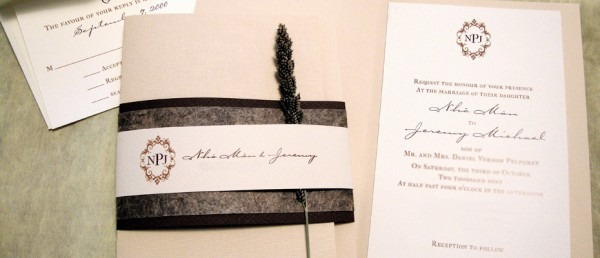 The favour of your reply is
September 7,
M
Accepts
Regr
Sat
NPJ
Nhã Mân & Jeremy
NPJ
Request the honour of your presence
At the marriage of their daughter
Nhã Mân
to
Jeremy Michael
son of
Mr. and Mrs. Daniel Vernon
On Saturday, the third of October
Two thousand
At half past four o'clock in the afternoon
Reception to follow